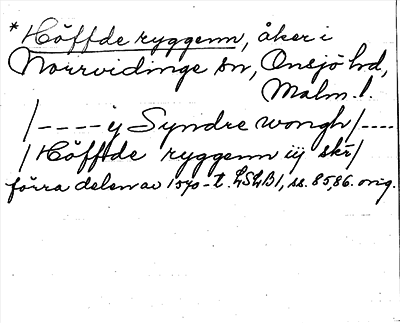 * Höffde ryggenn, åker i
Norrvidinge sn, Onsjö hd,
Malm. l.
/---- ij Syndre wongh/----
/ Höffde ryggenn iij skr/
förra delen av 1570-t. LSLB1, ss. 85, 86. orig.